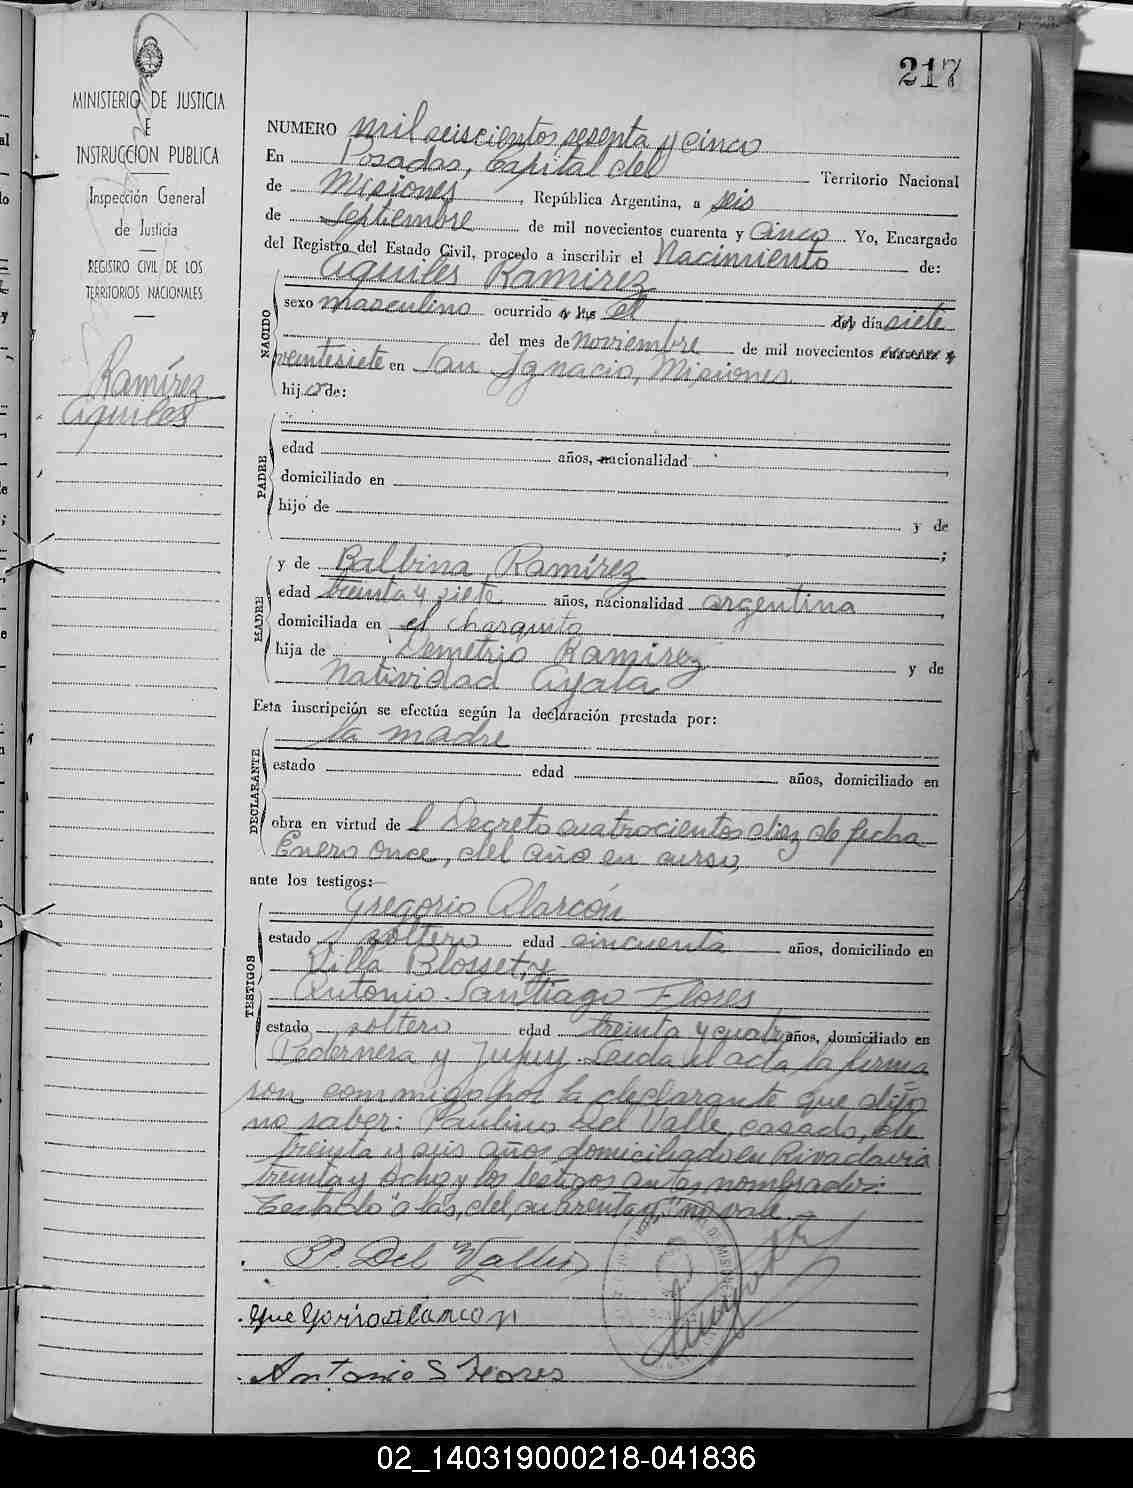 217
MINISTERIO DE JUSTICIA
E
INSTRUCCION PUBLICA
Inspección General
de Justicia
REGISTRO CIVIL DE LOS
TERRITORIOS NACIONALES
Ramírez
Aquiles
NUMERO mil seiscientos sesenta y cinco
En Posadas, Capital del Territorio Nacional
de Misiones, República Argentina, a seis
de Septiembre de mil novecientos cuarenta y Cinco Yo, Encargado
del Registro del Estado Civil, procedo a inscribir el Nacimiento de:
Aquiles Ramirez
NACIDO
sexo masculino ocurrido a las el del día siete
del mes de Noviembre de mil novecientos cuarenta y
veintesiete en San Ignacio, Misiones
hijo de:
PADRE
edad años, nacionalidad
domiciliado en
hijo de y de
;
MADRE
y de Balbina Ramírez
edad treinta y siete años, nacionalidad argentina
domiciliada en el charquito
hija de Demetrio Ramirez y de
Natividad Ayala
Esta inscripción se efectúa según la declaración prestada por:
la madre
DECLARANTE
estado edad años, domiciliado en
obra en virtud de l Decreto cuatrocientos diez de fecha
Enero Once, del año en curso,
ante los testigos:
Gregorio Alarcón
TESTIGOS
estado soltero edad cincuenta años, domiciliado en
Villa Blosset, y
Antonio Santiago Flores
estado soltero edad treinta y cuatro años, domiciliado en
Pedernera y Jujuy. Leída el acta la firma
son commigo por la declarante que dijo
no saber: Paulino Del Valle, casado, de
treinta y seis años domiciliado en Rivadavia
treinta y ocho y los testigos antes nombrados.
Testado "a las, del, cuarenta y," no vale
P. Del Valle
Gue Gorio Alarcon
Antonio S Flores
02_140319000218-041836